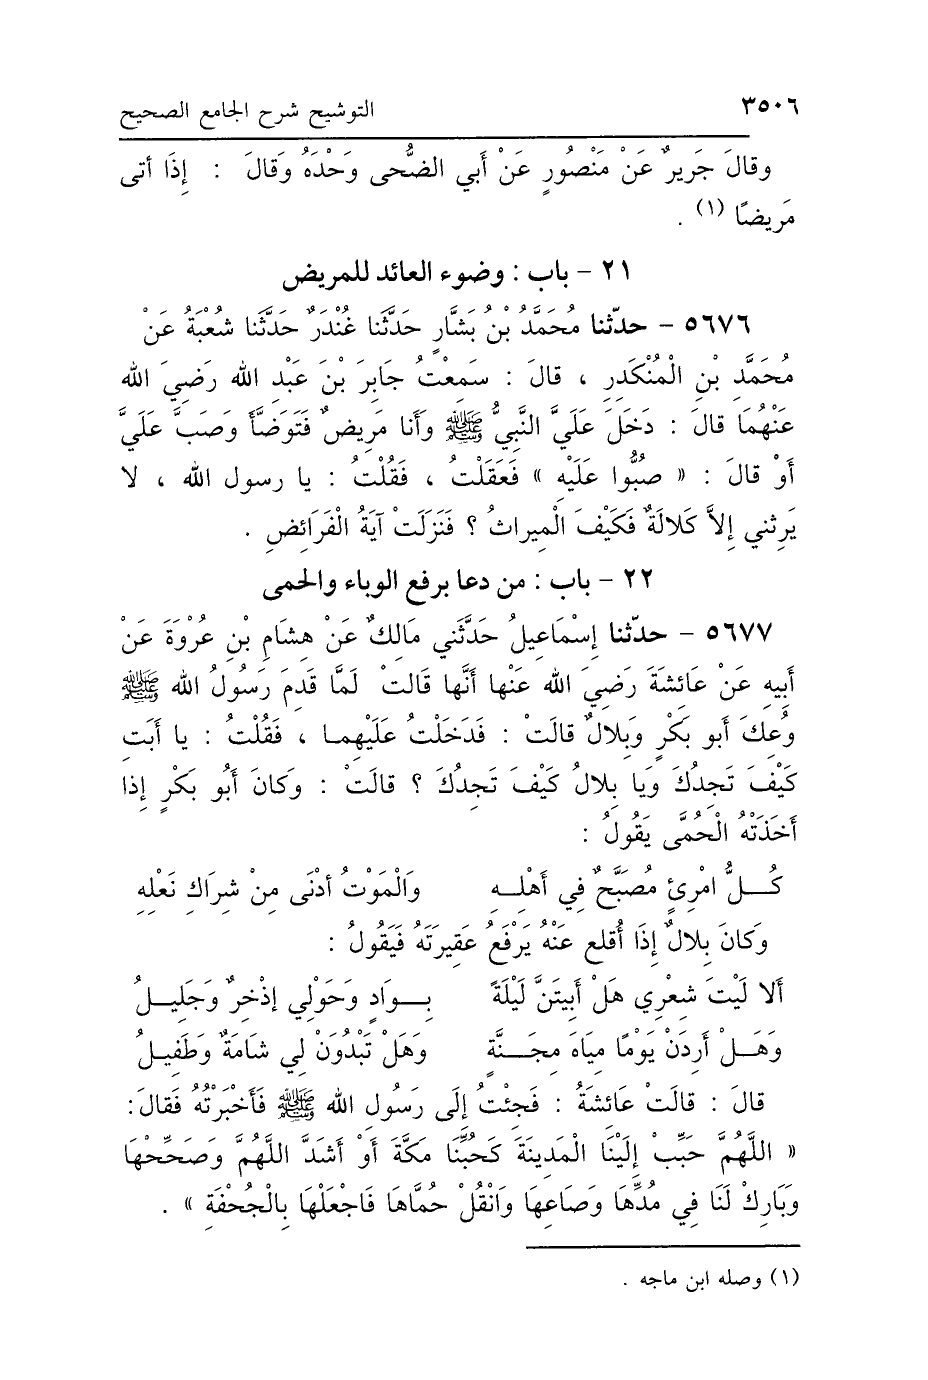 ٣٥٠٦ التوشيح شرح الجامع الصحيح
وقالَ جَرِيرٌ عَنْ مَنْصُورٍ عَنْ أَبي الضُّحى وَحْدَهُ وَقالَ : إِذَا أتى
مَرِيضًا (١) .
٢١ - باب : وضوء العائد للمريض
٥٦٧٦ - حدّثنا مُحَمَّدُ بْنُ بَشَّارٍ حَدَّثَنا غُنْدَرٌ حَدَّثَنا شُعْبَةُ عَنْ
مُحَمَّدِ بْنِ الْمُنْكَدِرِ ، قالَ : سَمِعْتُ جَابِرَ بْنَ عَبْدِ اللهِ رَضِيَ اللهُ
عَنْهُمَا قالَ : دَخَلَ عَلَيَّ النَّبِيُّ ﷺ وَأَنا مَرِيضٌ فَتَوَضَّأَ وَصَبَّ عَلَيَّ
أَوْ قالَ : « صُبُّوا عَلَيْهِ » فَعَقَلْتُ ، فَقُلْتُ : يا رسول الله ، لا
يَرِثني إِلاَّ كَلالَةٌ فَكَيْفَ الْمِيراثُ ؟ فَنَزَلَتْ آيَةُ الْفَرَائِضِ .
٢٢ - باب : من دعا برفع الوباء والحمى
٥٦٧٧ - حدّثنا إِسْمَاعِيلُ حَدَّثَني مَالِكٌ عَنْ هِشَامِ بْنِ عُرْوَةَ عَنْ
أَبِيهِ عَنْ عَائِشَةَ رَضِيَ اللهُ عَنْها أَنَّها قالَت لَمَّا قَدِمَ رَسُولُ اللهِ ﷺ
وُعِكَ أَبو بَكْرٍ وَبِلالٌ قالَتْ : فَدَخَلْتُ عَلَيْهِما ، فَقُلْتُ : يا أَبَتِ
كَيْفَ تَجِدُكَ وَيا بِلالُ كَيْفَ تَجِدُكَ ؟ قالَتْ : وَكانَ أَبُو بَكْرٍ إِذا
أَخَذَتْهُ الْحُمَّى يَقُولُ :
كُلُّ امْرِئٍ مُصَبَّحٌ فِي أَهْلِهِ وَالْمَوْتُ أَدْنَى مِنْ شِرَاكِ نَعْلِهِ
وَكانَ بِلالٌ إِذَا أُقلع عَنْهُ يَرْفَعُ عَقِيرَتَهُ فَيَقُولُ :
أَلا لَيْتَ شِعْرِي هَلْ أَبِيتَنَّ لَيْلَةً بِوَادٍ وَحَوْلِي إِذْخِرٌ وَجَلِيلُ
وَهَلْ أَرِدَنْ يَوْمًا مِياهَ مِجَنَّةٍ وَهَلْ تَبْدُوَنْ لِي شامَةٌ وَطَفِيلُ
قالَ : قالَتْ عَائِشَةُ : فَجِئْتُ إِلَى رَسُولِ اللهِ ﷺ فَأَخْبَرْتُهُ فَقالَ:
« اللَّهُمَّ حَبِّبْ إِلَيْنَا الْمَدِينَةَ كَحُبِّنَا مَكَّةَ أَوْ أَشَدَّ اللَّهُمَّ وَصَحِّحْهَا
وَبَارِكْ لَنَا فِي مُدِّهَا وَصَاعِهَا وَانْقُلْ حُمَّاهَا فَاجْعَلْهَا بِالْجُحْفَةِ » .
(١) وصله ابن ماجه .